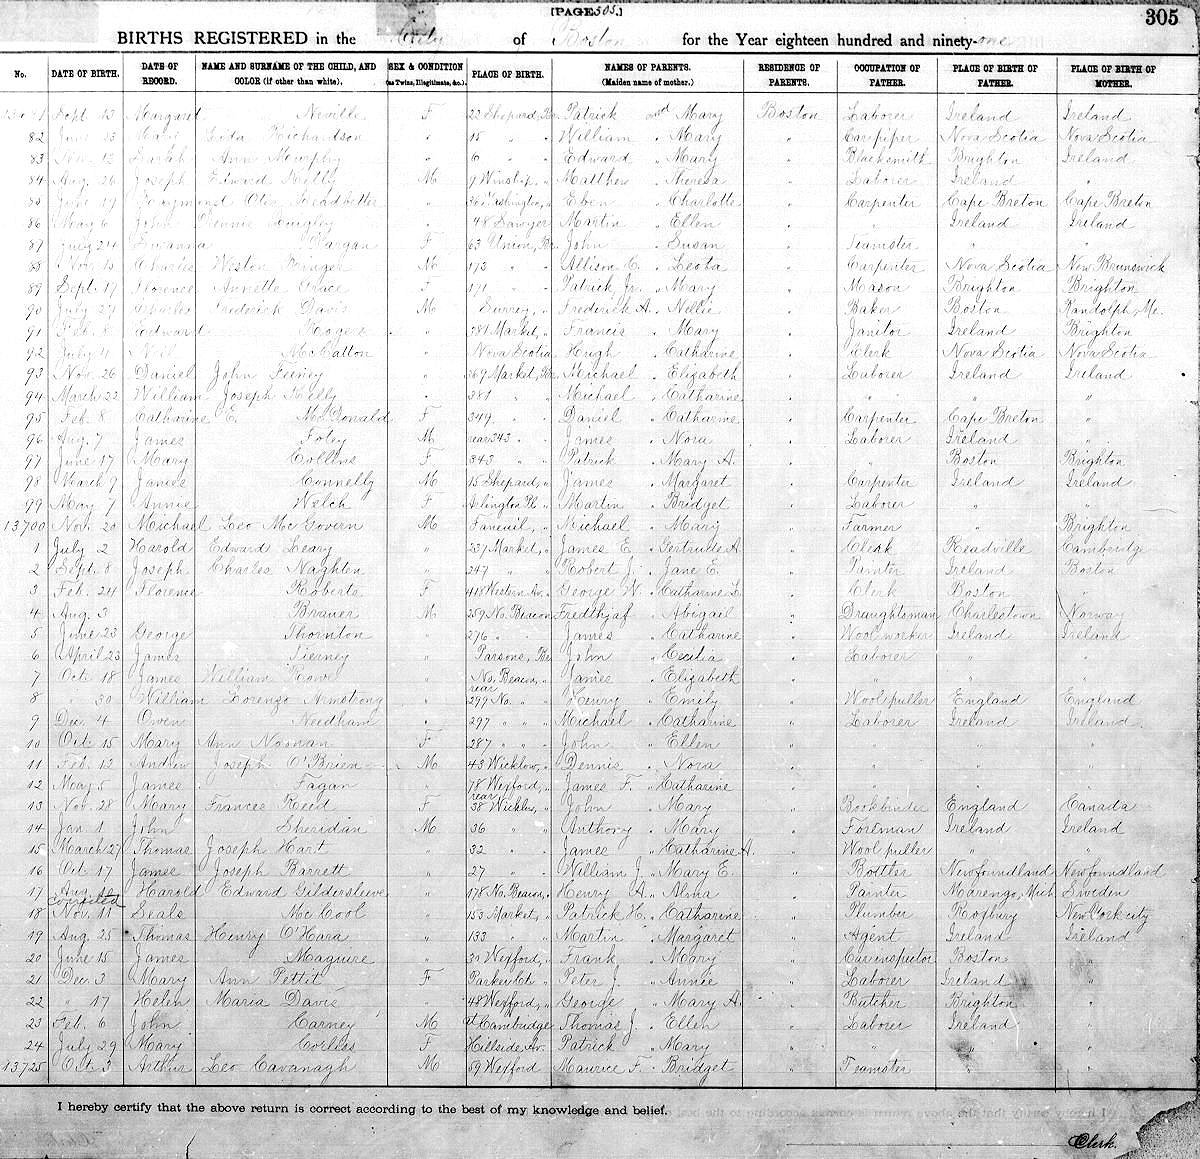 [PAGE 305.]
305
BIRTHS REGISTERED in the City of Boston for the Year eighteen hundred and ninety-one
No. DATE OF BIRTH. DATE OF RECORD. NAME AND SURNAME OF THE CHILD, AND COLOR (if other than white). SEX & CONDITION (as Twins, Illegitimate, &c.) PLACE OF BIRTH. NAMES OF PARENTS. (Maiden name of mother.) RESIDENCE OF PARENTS. OCCUPATION OF FATHER. PLACE OF BIRTH OF FATHER. PLACE OF BIRTH OF MOTHER.
Sept. 13 Margaret Neville F 22 Shepard, Patrick and Mary Boston Laborer Ireland Ireland
82 13 Richardson " 15 " " William " Mary " Car piper Nova Scotia Nova Scotia
83 Nov. 13 Sarah Ann Murphy " 6 " " Edward " Mary " Blacksmith Brighton Ireland
84 Aug. 26 Joseph Edward M 9 Winship, " Matthew " Theresa " Laborer Ireland "
85 June 19 Otis Leadbetter " Washington, " Eben " Charlotte " Carpenter Cape Breton Cape Breton
86 May 6 John Dennis Quigley " 48 Sawyer Martin " Ellen " " Ireland Ireland
87 July 24 Susanna Dargan F 63 Union, Br. John " Susan " Teamster " "
88 Nov. 15 Charles Weston M 173 " " Allison C. " Leota " Carpenter Nova Scotia New Brunswick
89 Sept. 17 Florence Annette Grace F 171 " " Patrick Jr. " Mary " Mason Brighton Brighton
90 July 27 Charles Frederick Davis M Surrey, " Frederick A. " Nellie " Baker Boston Randolph, Me.
91 Feb. 8 Edward Rogers " 381 Market, " Francis " Mary " Janitor Ireland Brighton
92 July 4 McMatton " Nova Scotia Hugh " Catharine " Clerk Nova Scotia Nova Scotia
93 Nov. 26 Daniel John " 369 Market, Br. Michael " Elizabeth " Laborer Ireland Ireland
94 March 22 William Joseph Kelly " 381 " " Michael " Catharine " " " "
95 Feb. 8 Catharine E. McDonald F 349 " " Daniel " Catharine " Carpenter Cape Breton "
96 Aug. 7 James Foley M rear 343 " " James " Nora " Laborer Ireland "
97 June 17 Mary Collins F 343 " " Patrick " Mary A. " " Boston Brighton
98 March 9 James Connelly M 15 Shepard, " James " Margaret " Carpenter Ireland Ireland
99 May 7 Annie Welch F Arlington Pl. " Martin " Bridget " Laborer " "
13700 Nov. 20 Michael Leo McGovern M Faneuil, " Michael " Mary " Farmer " Brighton
1 July 2 Harold Edward Leary " 237 Market, " James E. " Gertrude A. " Clerk Readville Cambridge
2 Sept. 8 Joseph Charles Naghten " 247 " " Robert J. " Jane E. " Ireland Boston
3 Feb. 24 Florence Roberts F 415 Western Av. " George W. " Catharine L. " Clerk Boston "
4 Aug. 3 Brauer M 259 No. Beacon Fredthjaf " Abigail " Draughtsman Charlestown Norway
5 June 23 George Thornton " 276 " " James " Catharine " Wool worker Ireland Ireland
6 April 23 James Tierney " Parsons, John " Cecilia " Laborer " "
7 Oct. 18 James William Rowe " No. Beacon, " James " Elizabeth " " " "
8 " 30 William Lorenzo Armstrong " rear 299 No. " " Henry " Emily " Wool puller England England
9 Dec. 4 Owen Needham " 297 " " " Michael " Catharine " Laborer Ireland Ireland
10 Oct. 15 Mary Ann Noonan F 287 " " " John " Ellen " " " "
11 Feb. 12 Andrew Joseph O'Brien M 43 Wicklow, " Dennis " Nora " " " "
12 May 5 James Fagan " 78 Wexford, " James F. " Catharine " " " "
13 Nov. 28 Mary Frances Reed F rear 38 Wicklow, " John " Mary " Bookbinder England Canada
14 Jan. 1 John Sheridan M 36 " " Anthony " Mary " Foreman Ireland Ireland
15 March 27 Thomas Joseph Hart " 32 " " James " Catharine A. " Wool puller " "
16 Oct. 17 James Joseph Barrett " 27 " " William J. " Mary E. " Bottler Newfoundland Newfoundland
17 Aug. 10 Harold Edward Gildersleeve " 178 No. Beacon, " Henry A. " Alma " Painter Marengo, Mich. Sweden
corrected
18 Nov. 11 Seals McCool " 153 Market, " Patrick H. " Catharine " Plumber Roxbury New York city
19 Aug. 25 Thomas Henry O'Hara " 133 " " Martin " Margaret " Agent Ireland Ireland
20 June 15 James Maguire " 30 Wexford, " Frank " Mary " Car inspector Boston "
21 Dec. 3 Mary Ann Pettit F Parker Ct. " Peter J. " Annie " Laborer Ireland "
22 " 17 Helen Maria Davis " 48 Wexford, " George " Mary A. " Butcher Brighton "
23 Feb. 6 John Carney M Cambridge Thomas J. " Ellen " Laborer Ireland "
24 July 29 Mary Corliss F Hillside Av. " Patrick " Mary " " " "
13725 Oct. 3 Arthur Leo Cavanagh M 59 Wexford Maurice F. " Bridget " Teamster " "
I hereby certify that the above return is correct according to the best of my knowledge and belief.
Clerk.